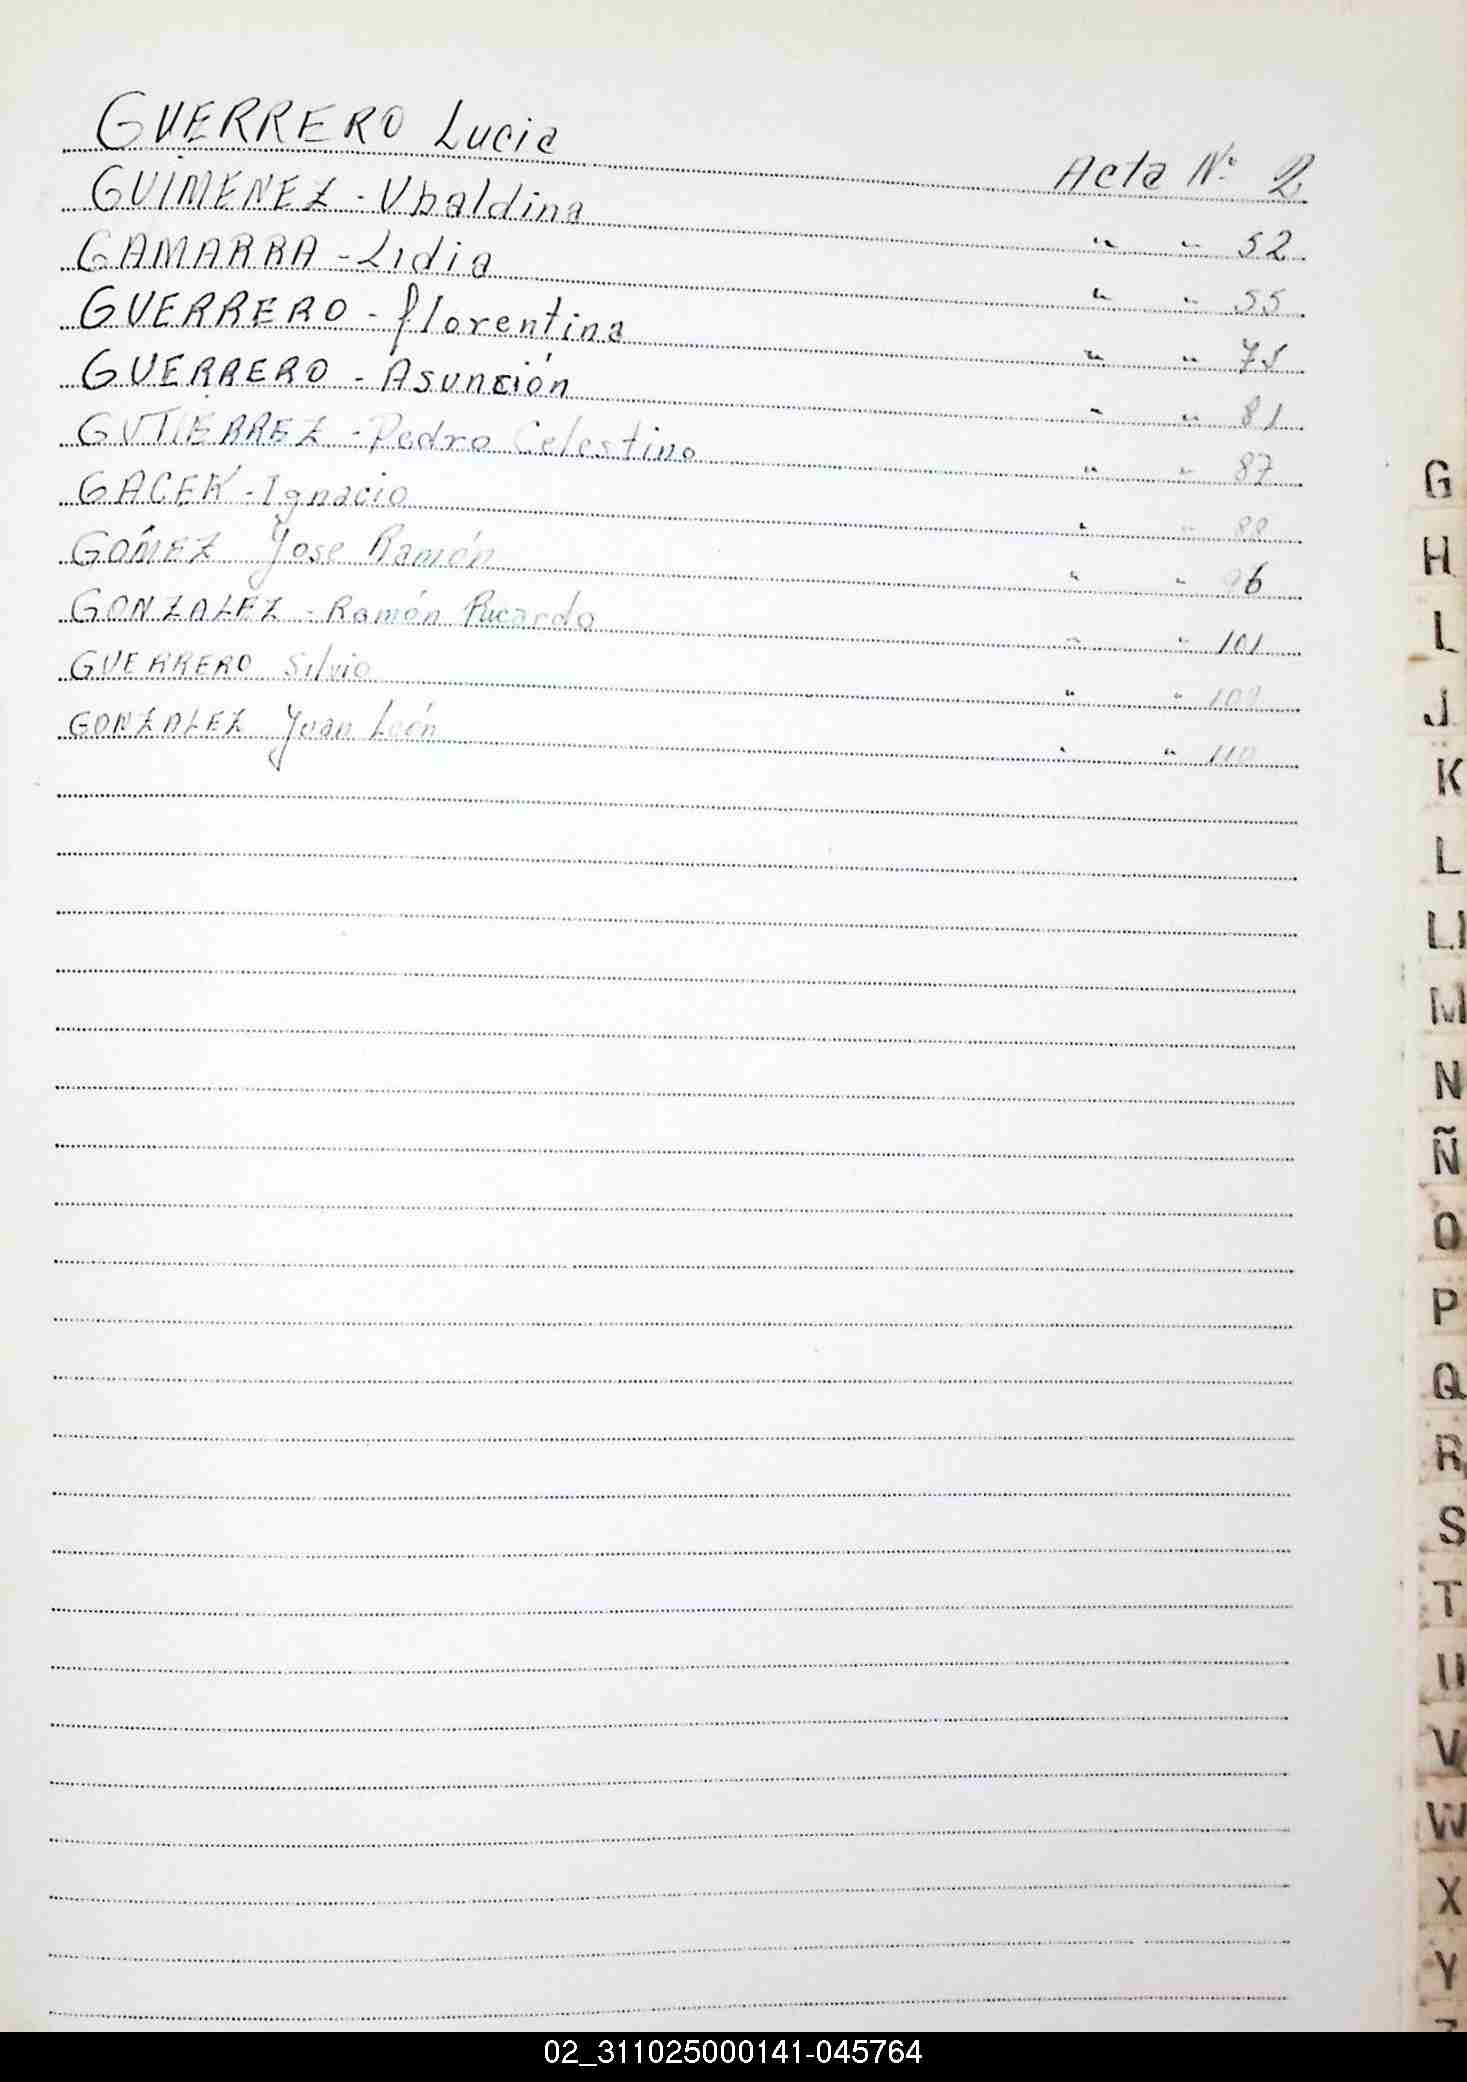 GUERRERO Lucia Acta Nº 2
GUIMENEZ - Ubaldina " " 52
GAMARRA - Lidia " " 55
GUERRERO - florentina " "
GUERRERO - Asunción " " 81
GUTIERREZ - Pedro Celestino " " 87
GACEK - Ignacio " " 88
GOMEZ Jose Ramón " " 96
GONZALEZ - Ramón Ricardo " " 101
GUERRERO Silvio " "
GONZALEZ Juan León " " 110
G
H
I
J
K
L
LL
M
N
Ñ
O
P
Q
R
S
T
U
V
W
X
Y
Z
02_311025000141-045764